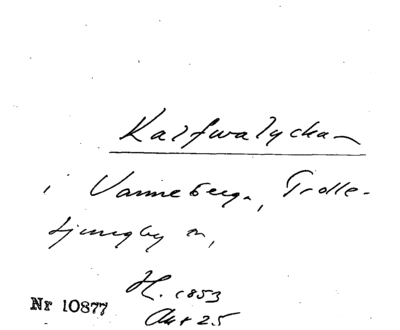 Kalfwalyckan
i Vanneberga, Trolle-
Ljungby sn,
H. 1853
Akt 25
Nr 10877